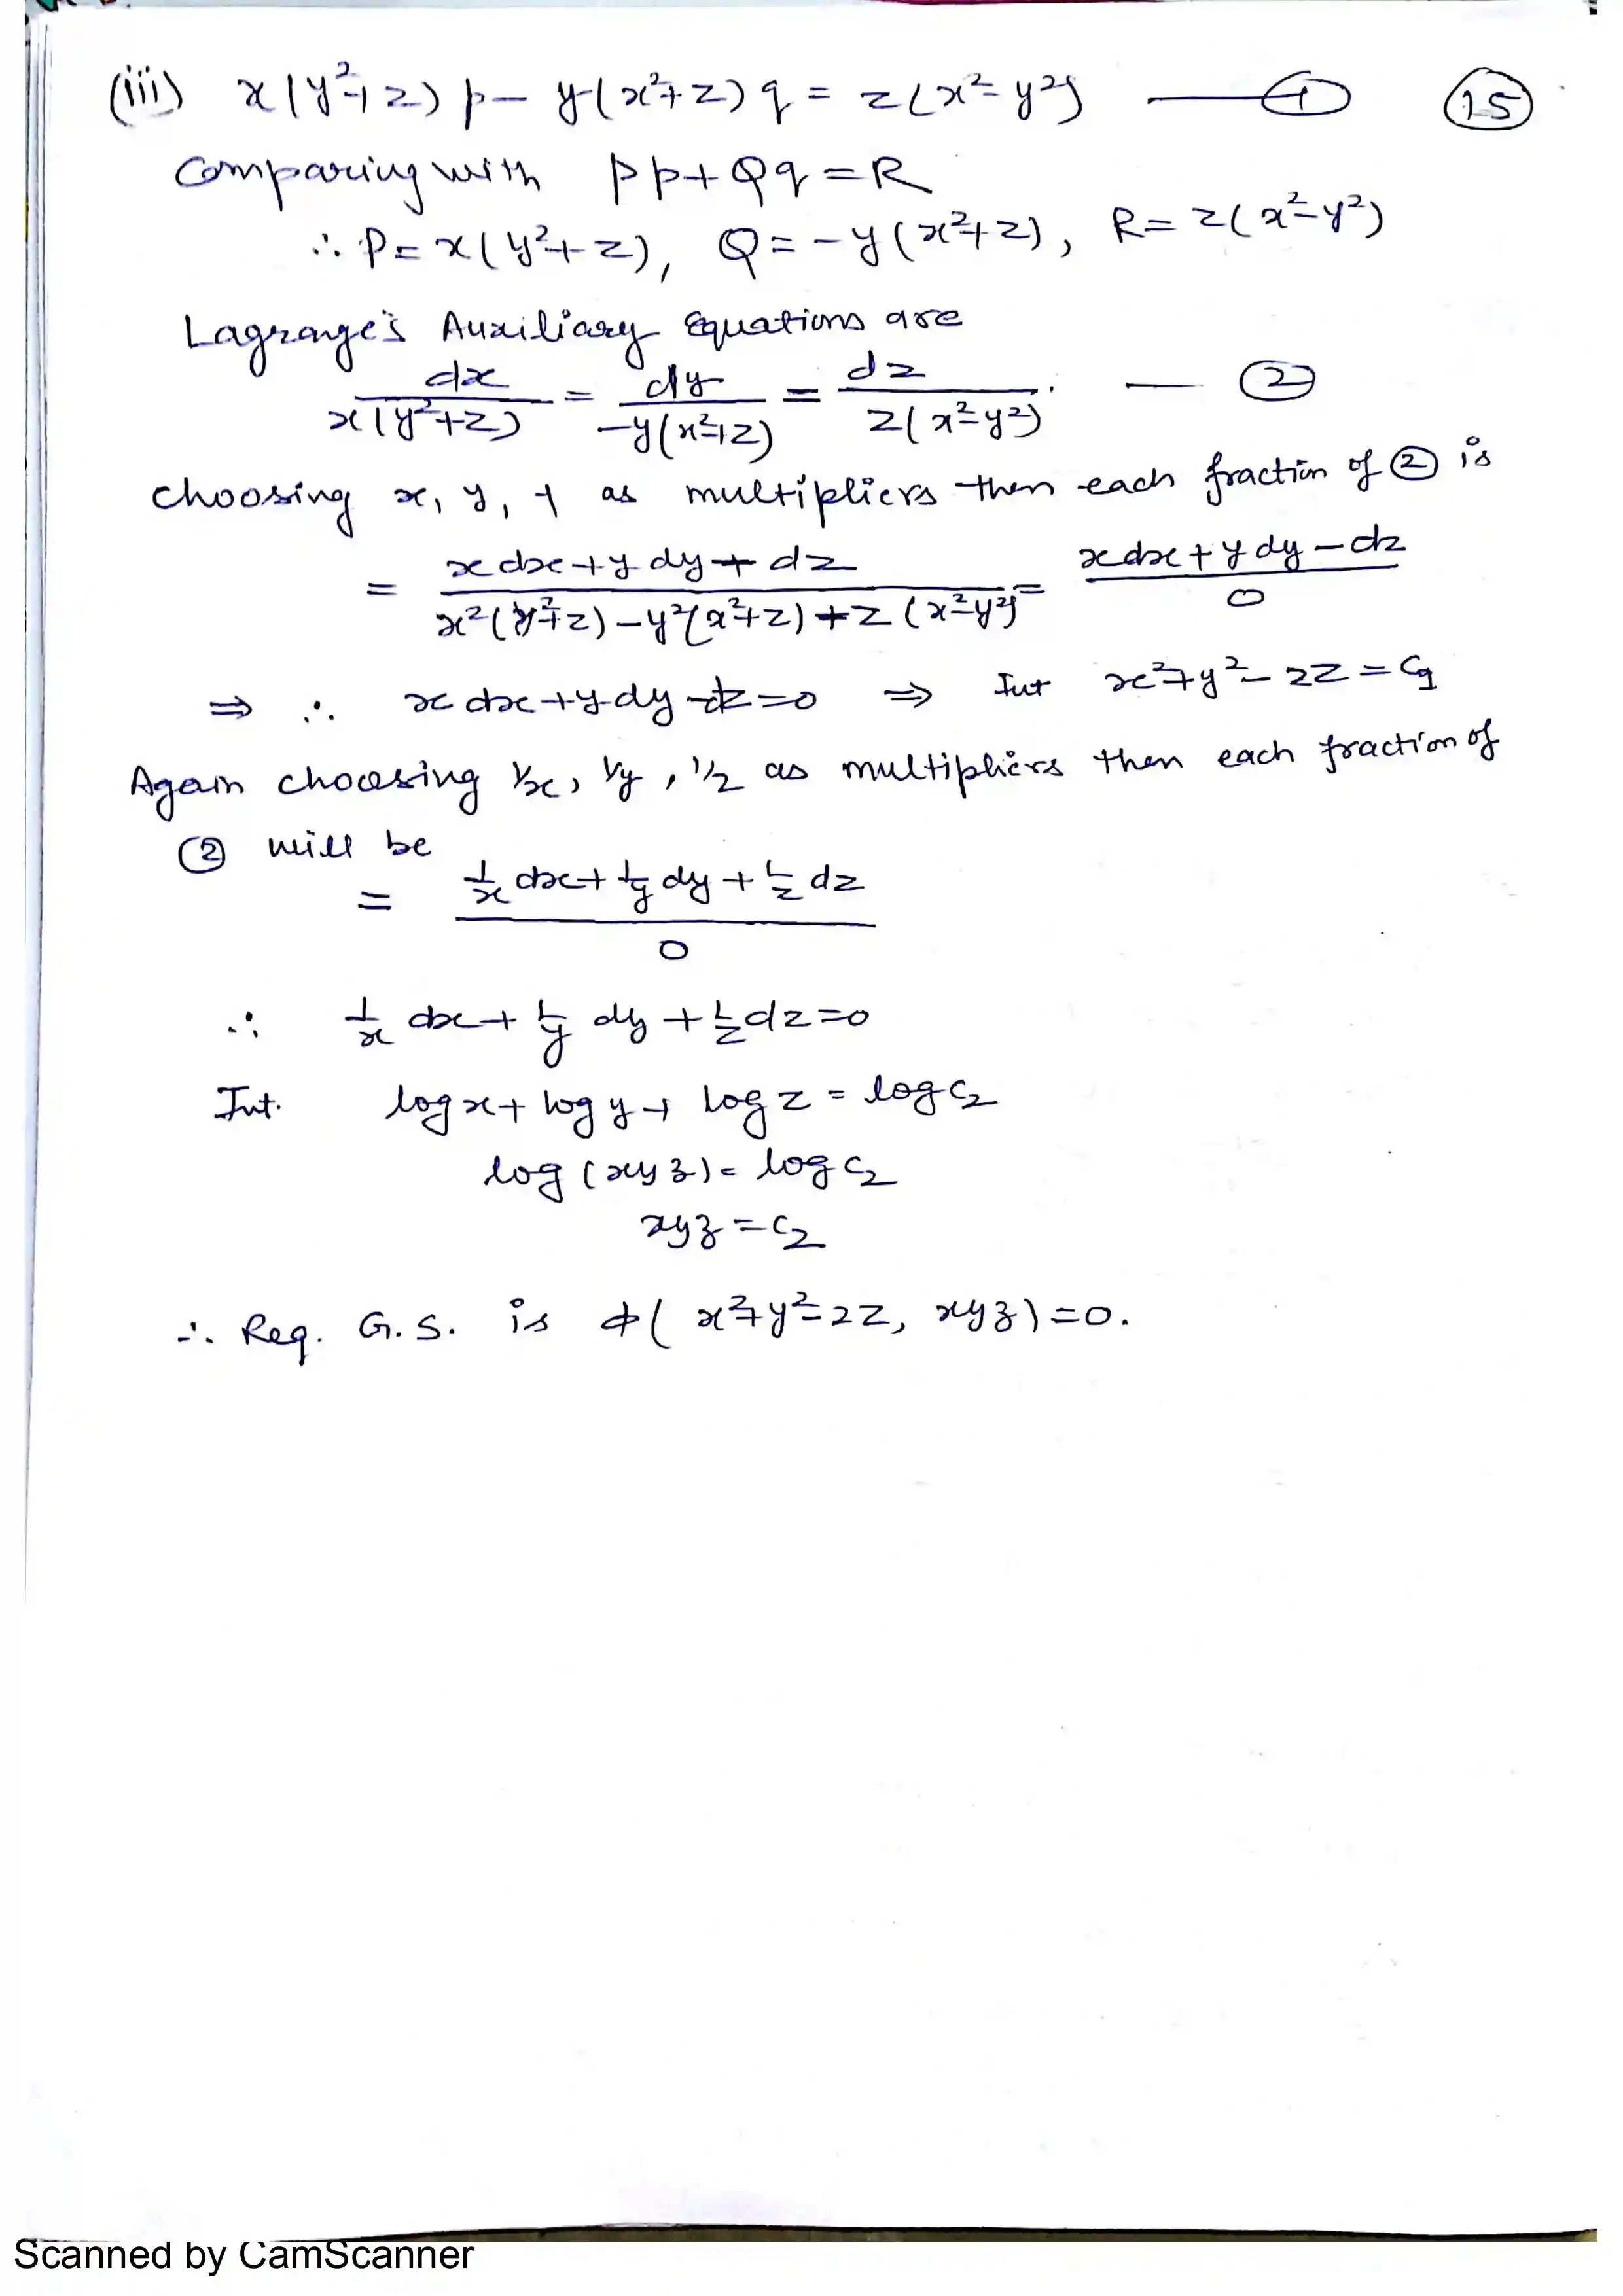 (iii) x(y²+z)p - y(x²+z)q = z(x²-y²) — ① ⑮
Comparing with Pp+Qq=R
∴ P= x(y²+z), Q= -y(x²+z), R= z(x²-y²)
Lagrange's Auxiliary Equations are
dx/x(y²+z) = dy/-y(x²+z) = dz/z(x²-y²) — ②
choosing x, y, -1 as multipliers then each fraction of ② is
= xdx+ydy+dz/x²(y²+z)-y²(x²+z)+z(x²-y²) = xdx+ydy-dz/0
⇒ ∴ xdx+ydy-dz=0 ⇒ Int x²+y²-2z=C1
Again choosing 1/x, 1/y, 1/z as multipliers then each fraction of
② will be
= 1/x dx+1/y dy+1/z dz/0
∴ 1/x dx+1/y dy+1/z dz=0
Int. log x+log y+log z = log C2
log(xyz)=log C2
xyz=C2
∴ Req. G.S. is ϕ(x²+y²-2z, xyz)=0.
Scanned by CamScanner